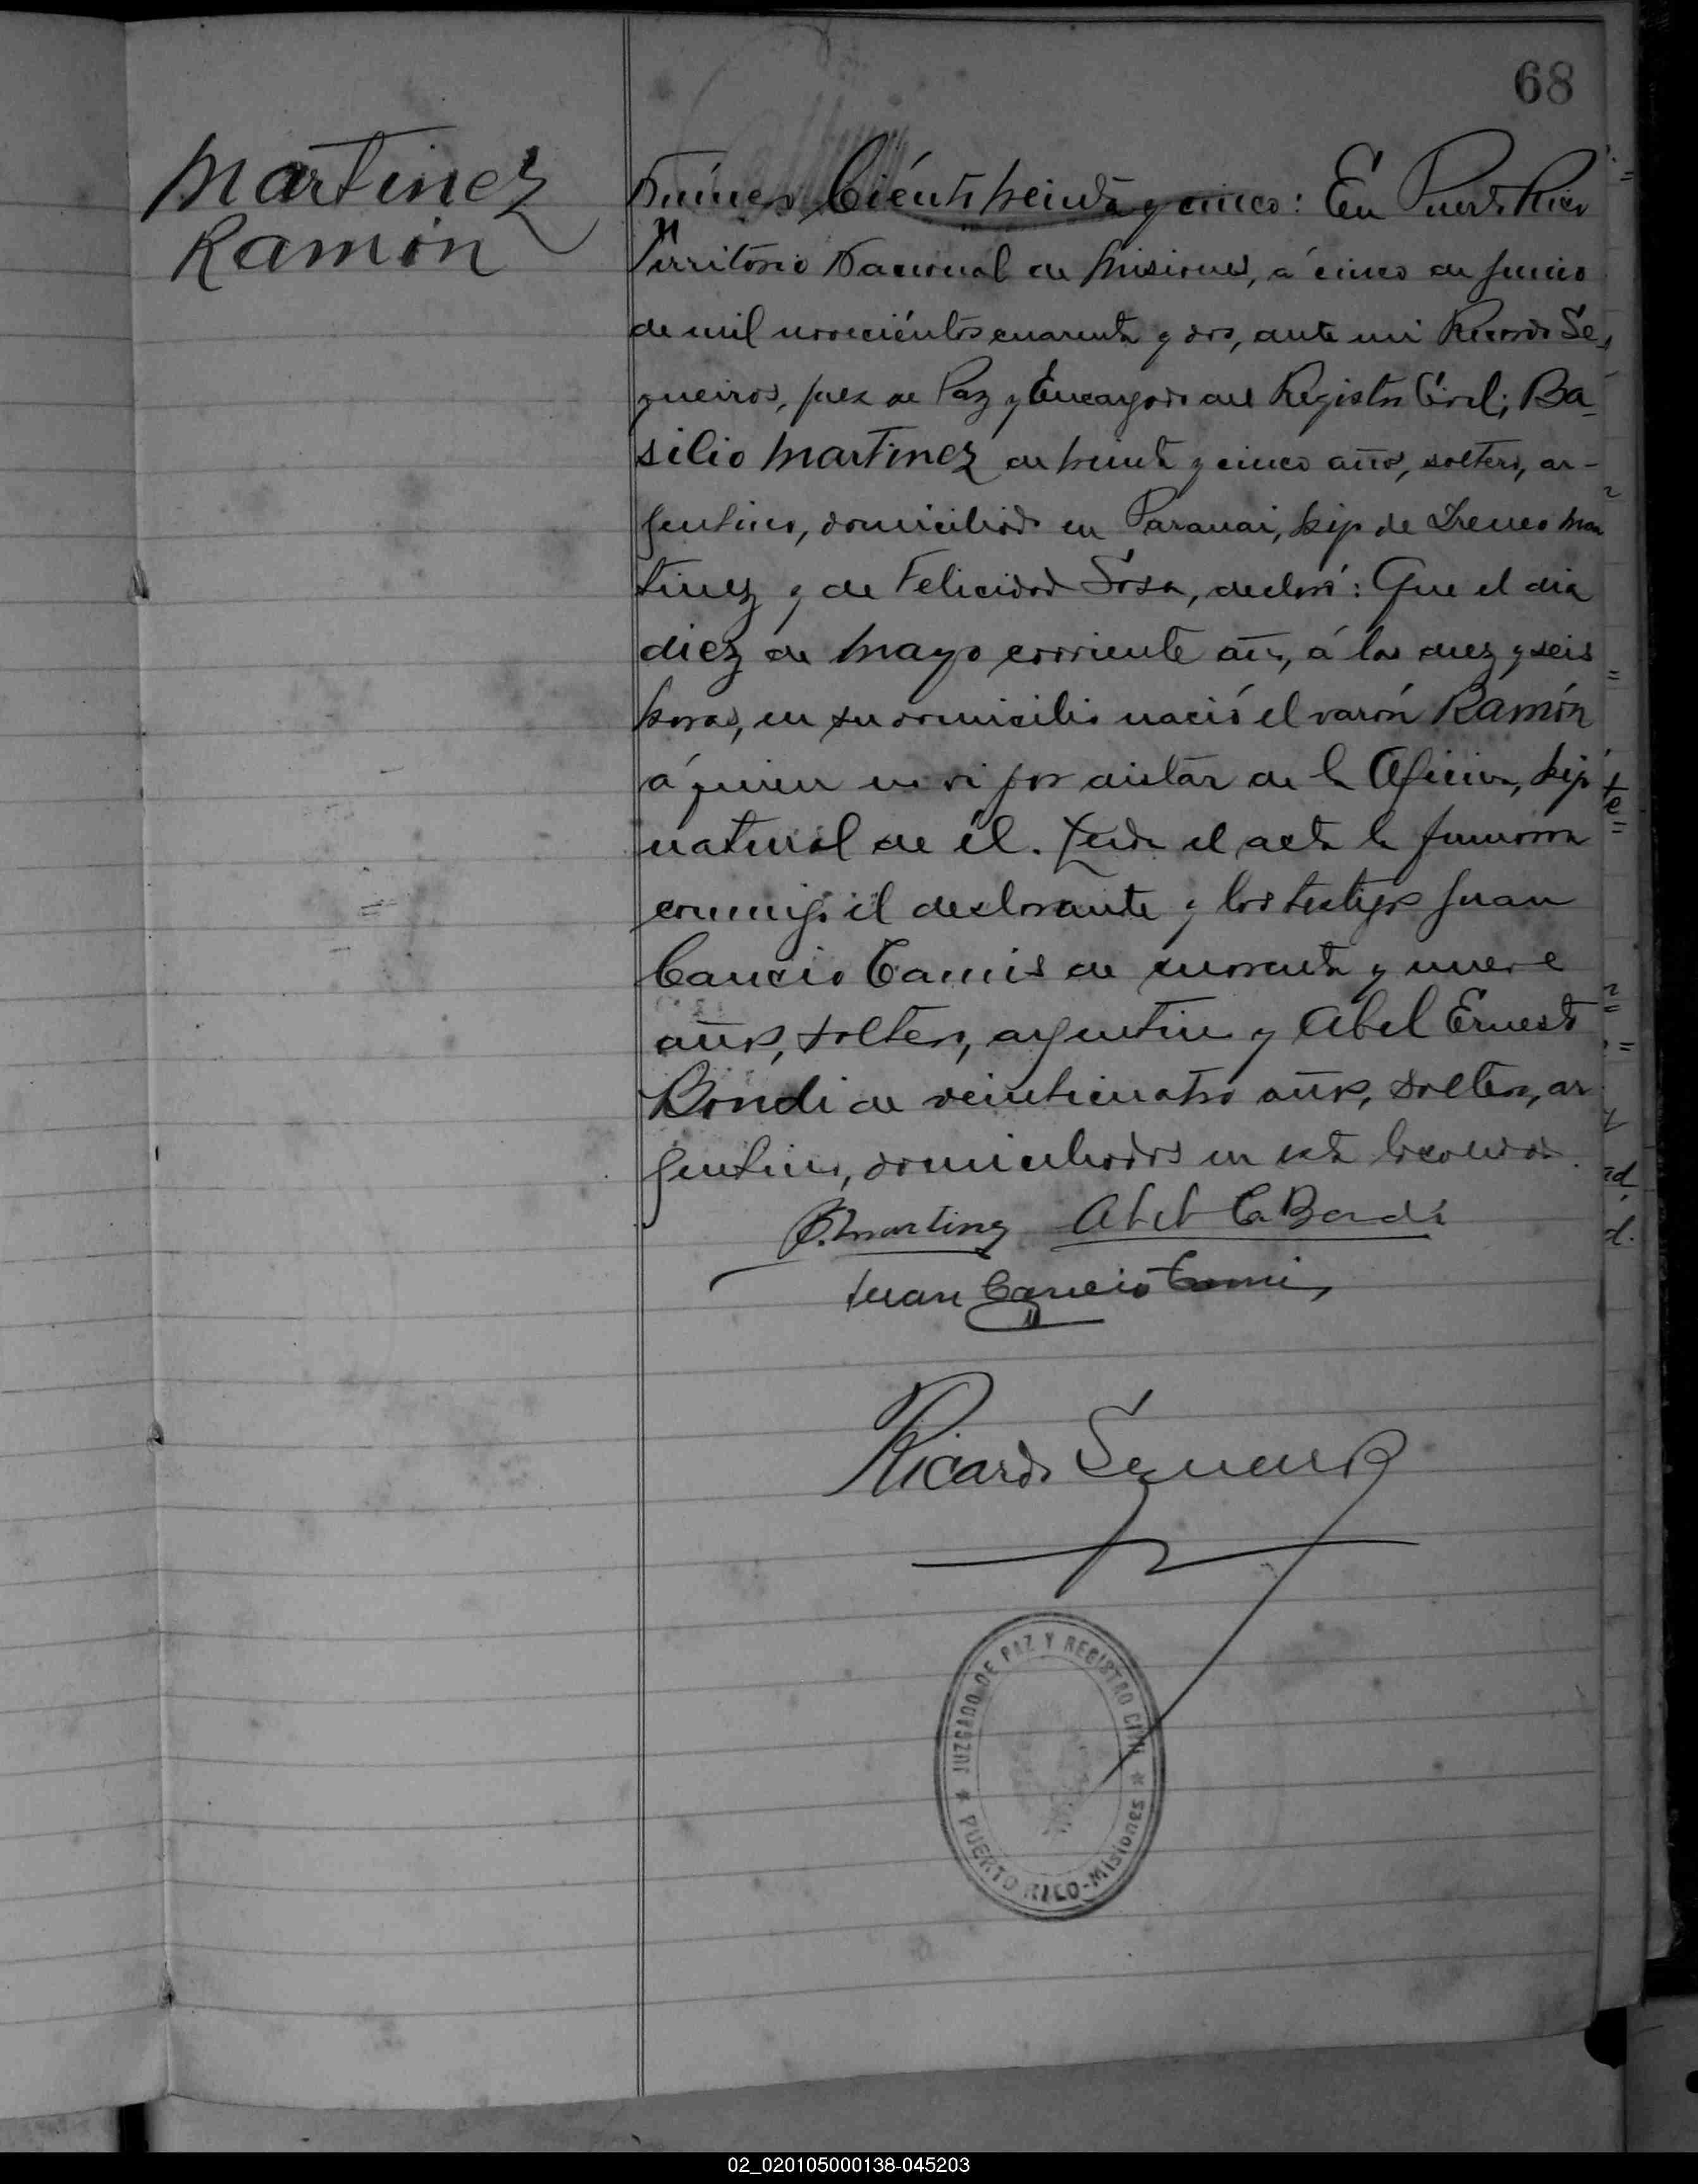 68
Martinez
Ramón
Número Ciento treinta y cinco: En Puerto Rico
Territorio Nacional de Misiones, á cinco de Junio
de mil novecientos cuarenta y dos, ante mi Ricardo Se-
queiros, Juez de Paz y Encargado del Registro Civil; Ba-
silio Martinez de treinta y cinco años, soltero, ar-
gentino, domiciliado en Paranai, hijo de Ireneo Mar
tinez y de Felicidad Sosa, declaró: Que el dia
diez de Mayo corriente año, á las diez y seis
horas, en su domicilio nació el varón Ramón
á quien no vi por distar de la Oficina, hijo
natural de él. Leida el acta la firmaron
conmigo el declarante y los testigos Juan
Cancio Camis de cuarenta y nueve
años, soltero, argentino y Abel Ernesto
Bondi de veinticuatro años, soltero, ar
gentino, domiciliados en esta localidad.
B. Martinez Abel E Bondi
Juan Cancio Camis
Ricardo Sequeiros
JUZGADO DE PAZ Y REGISTRO CIVIL
PUERTO RICO-Misiones
02_020105000138-045203